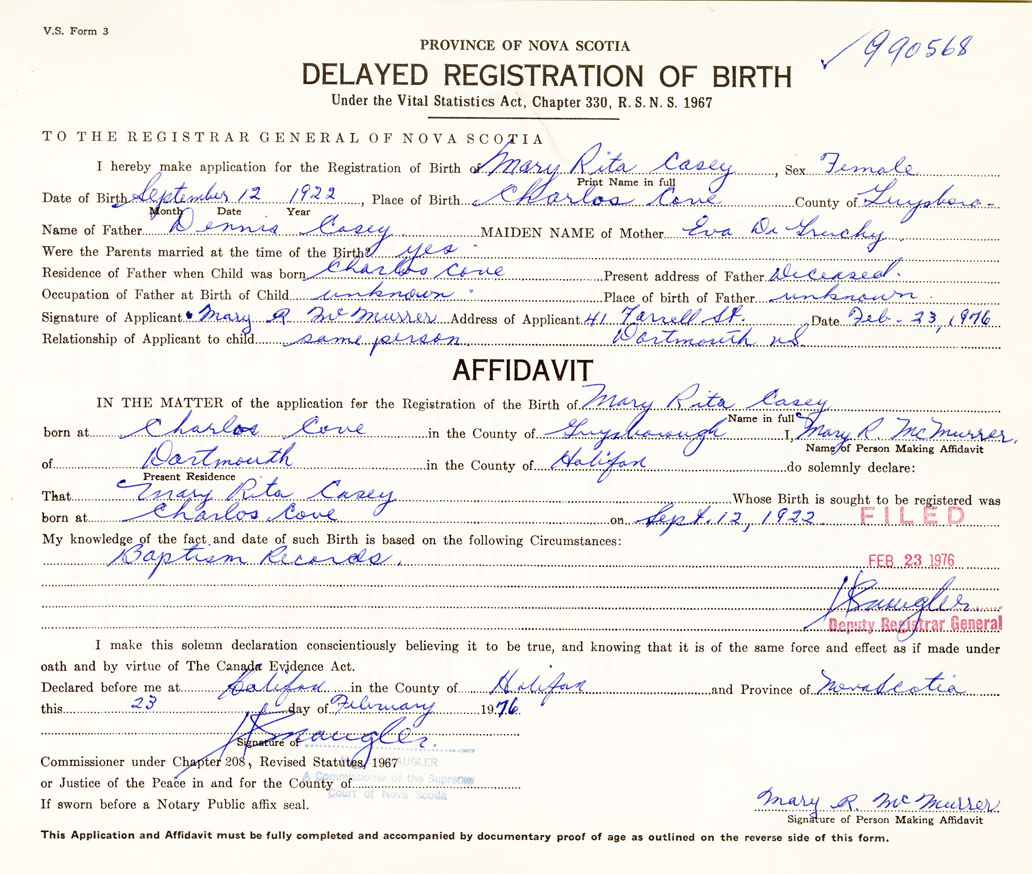 V.S. Form 3
✓ 990568
PROVINCE OF NOVA SCOTIA
DELAYED REGISTRATION OF BIRTH
Under the Vital Statistics Act, Chapter 330, R.S.N.S. 1967
TO THE REGISTRAR GENERAL OF NOVA SCOTIA
I hereby make application for the Registration of Birth of Mary Rita Casey, Sex Female
Print Name in full
Date of Birth September 12 1922, Place of Birth Charlos Cove County of Guysboro-
Month Date Year
Name of Father Dennis Casey MAIDEN NAME of Mother Eva De Gruchy
Were the Parents married at the time of the Birth? yes
Residence of Father when Child was born Charlos Cove Present address of Father Deceased.
Occupation of Father at Birth of Child unknown Place of birth of Father unknown
Signature of Applicant Mary R McMurrer Address of Applicant 41 Farrell St. Date Feb-23, 1976
Relationship of Applicant to child same person Dartmouth NS.
AFFIDAVIT
IN THE MATTER of the application for the Registration of the Birth of Mary Rita Casey
Name in full
born at Charlos Cove in the County of Guysborough I, Mary R. McMurrer,
Name of Person Making Affidavit
of Dartmouth in the County of Halifax do solemnly declare:
Present Residence
That Mary Rita Casey Whose Birth is sought to be registered was
born at Charlos Cove on Sept. 12, 1922
FILED
My knowledge of the fact and date of such Birth is based on the following Circumstances:
Baptism Records.
FEB 23 1976
Deputy Registrar General
I make this solemn declaration conscientiously believing it to be true, and knowing that it is of the same force and effect as if made under
oath and by virtue of The Canada Evidence Act.
Declared before me at Halifax in the County of Halifax and Province of Nova Scotia
this 23 day of February 1976
Signature of
Commissioner under Chapter 208, Revised Statutes, 1967
A Commissioner of the Supreme
or Justice of the Peace in and for the County of
Court of Nova Scotia
If sworn before a Notary Public affix seal.
Mary R. McMurrer
Signature of Person Making Affidavit
This Application and Affidavit must be fully completed and accompanied by documentary proof of age as outlined on the reverse side of this form.